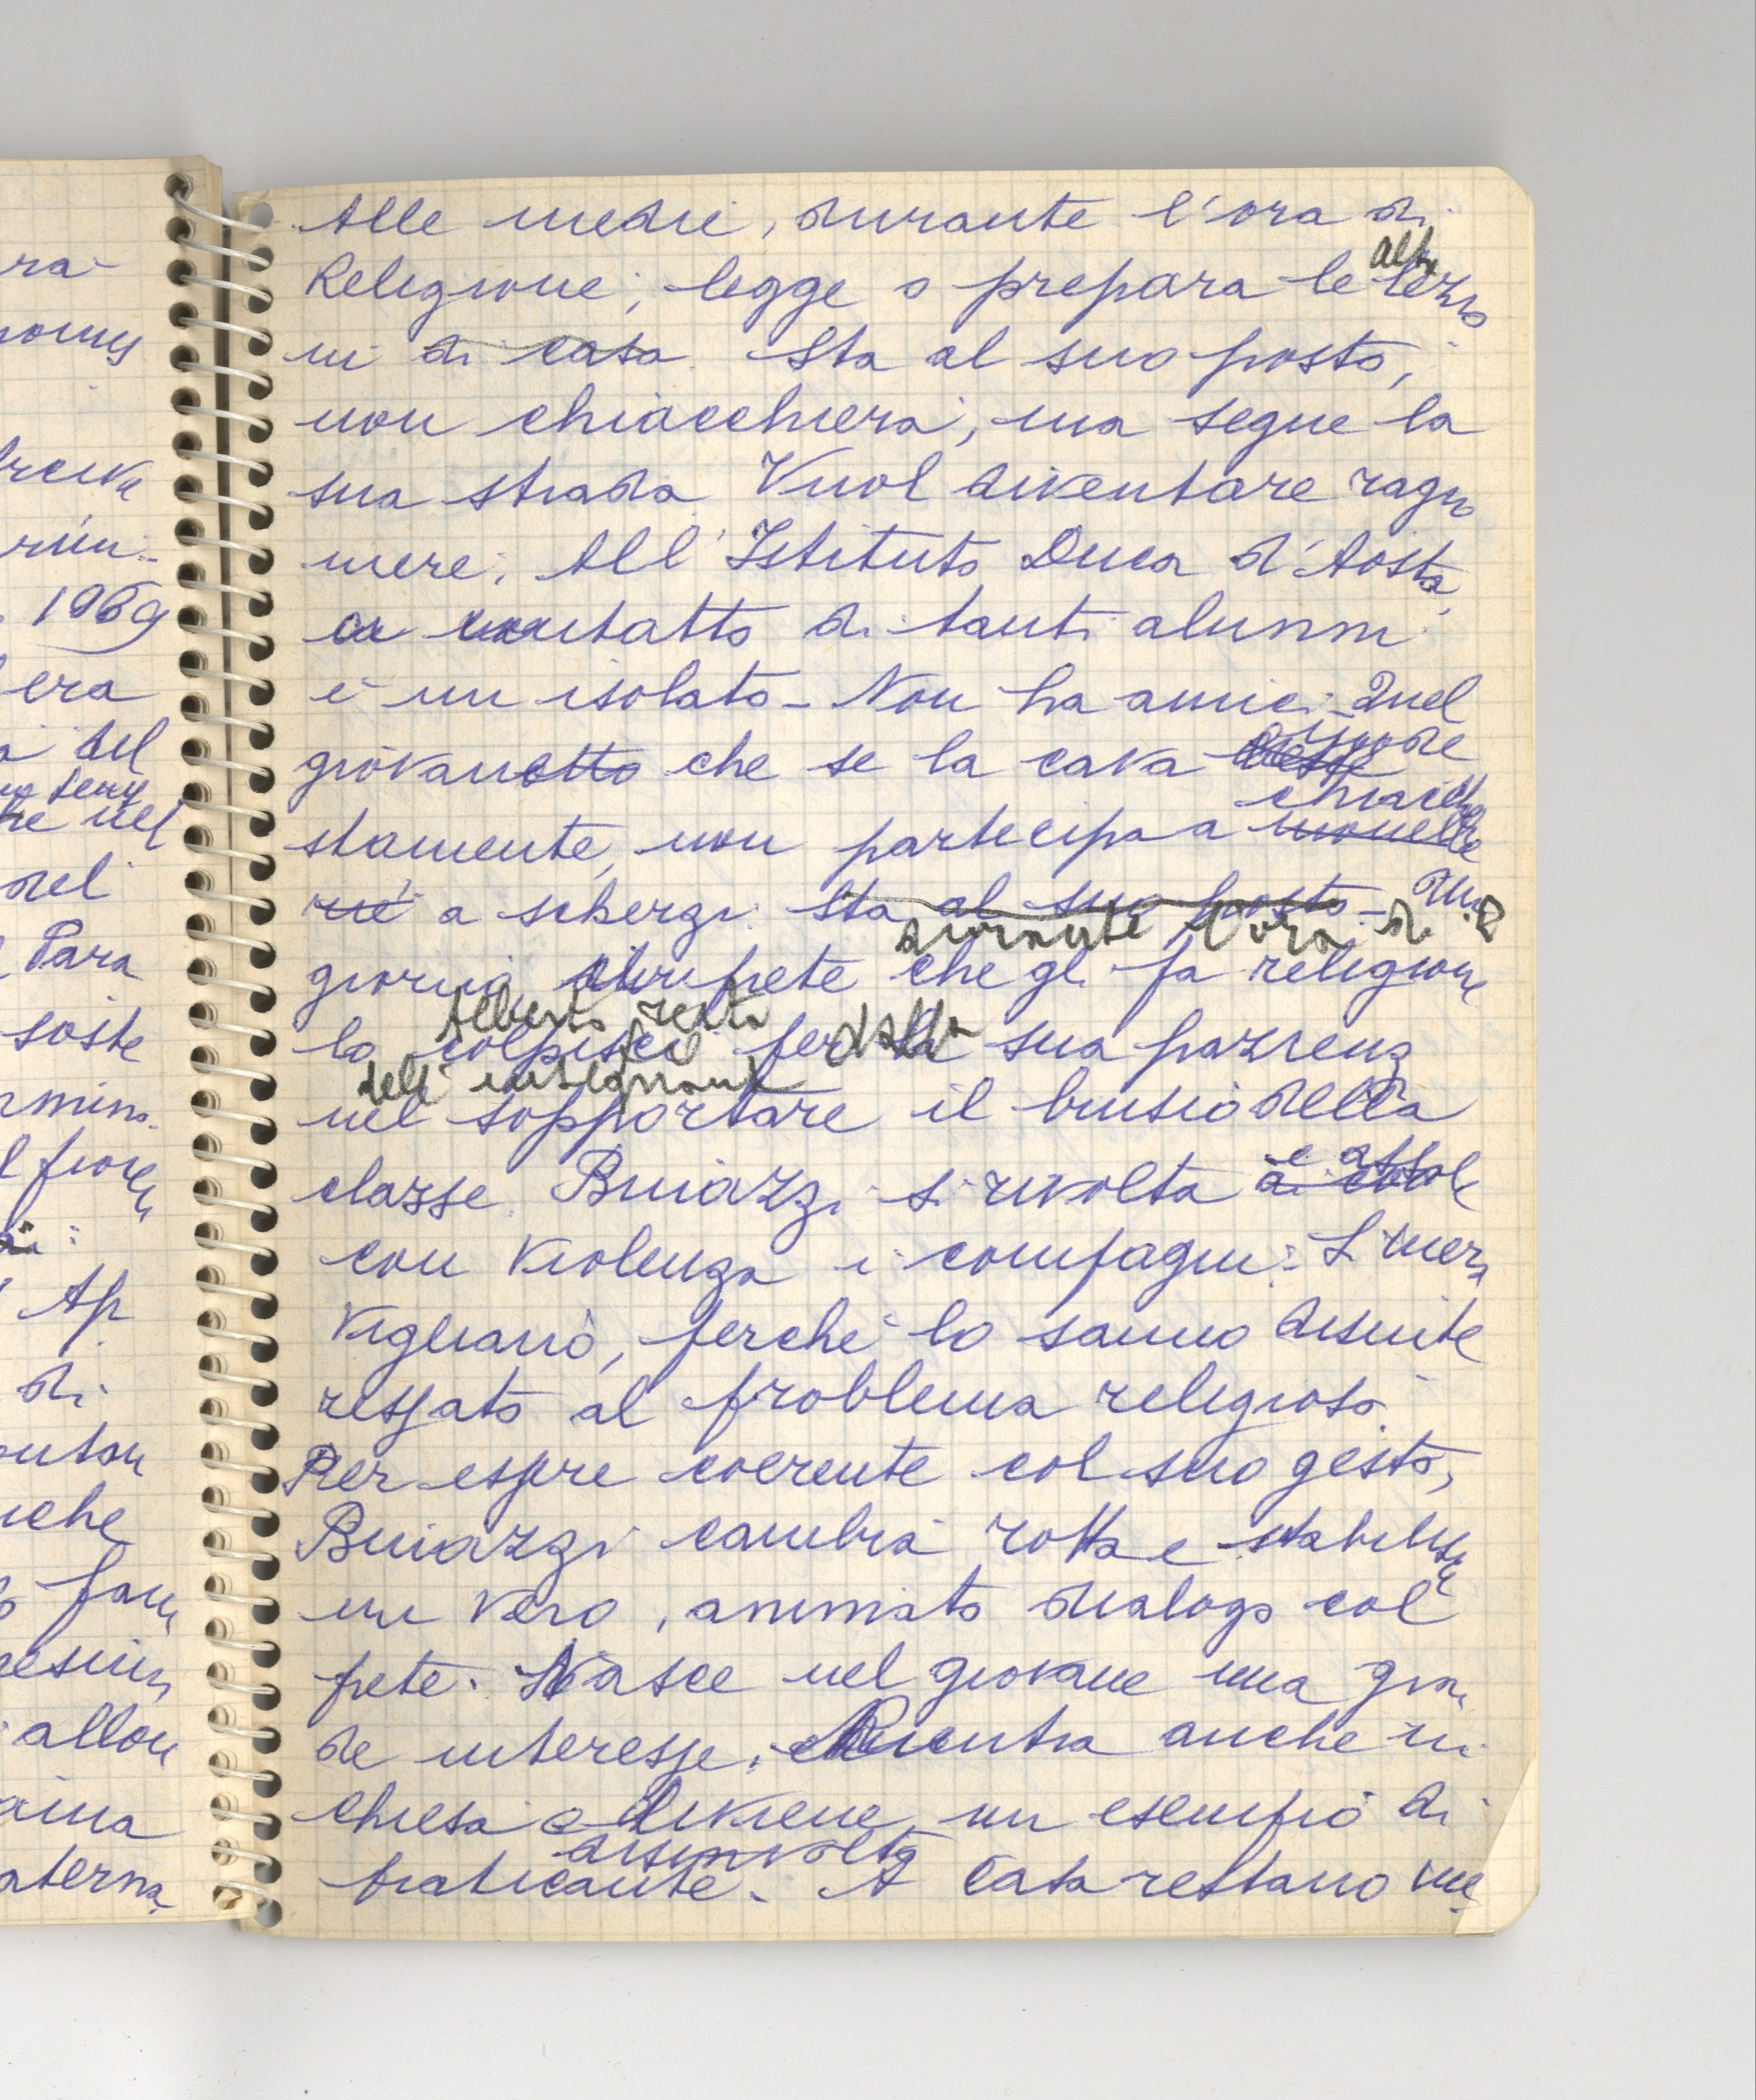 Alle medie, durante l'ora di
altre
Religione, legge o prepara le lezio
ni di casa. Sta al suo posto,
non chiacchiera, ma segue la
sua strada. Vuol diventare ragio
niere. All'Istituto Duca d'Aosta,
a contatto di tanti alunni
è un isolato - Non ha amici - Quel
giovanetto che se la cava
mode
stamente, non partecipa a monelle
chiacchie
rie a scherzi. Sta al suo posto - Un
durante l'ora di R
giorno, il prete che gli fa religione
Alberto resta
lo colpisce per la sua pazienza
dalla
dell'insegnante
nel sopportare il brusio della
classe. Buiazzi si rivolta
con violenza i compagni. Si mera
vigliano, perché lo sanno disinte
ressato al problema religioso.
Per essere coerente col suo gesto,
Buiazzi cambia rotta e stabilisce
un vero, animato dialogo col
prete. Nasce nel giovane una gran
de interesse. Rientra anche in
chiesa e diviene un esempio di
disinvolto
praticante. A casa restano me
ra
1969
era
del
nel
del
Para
soste
di
allora
aterna